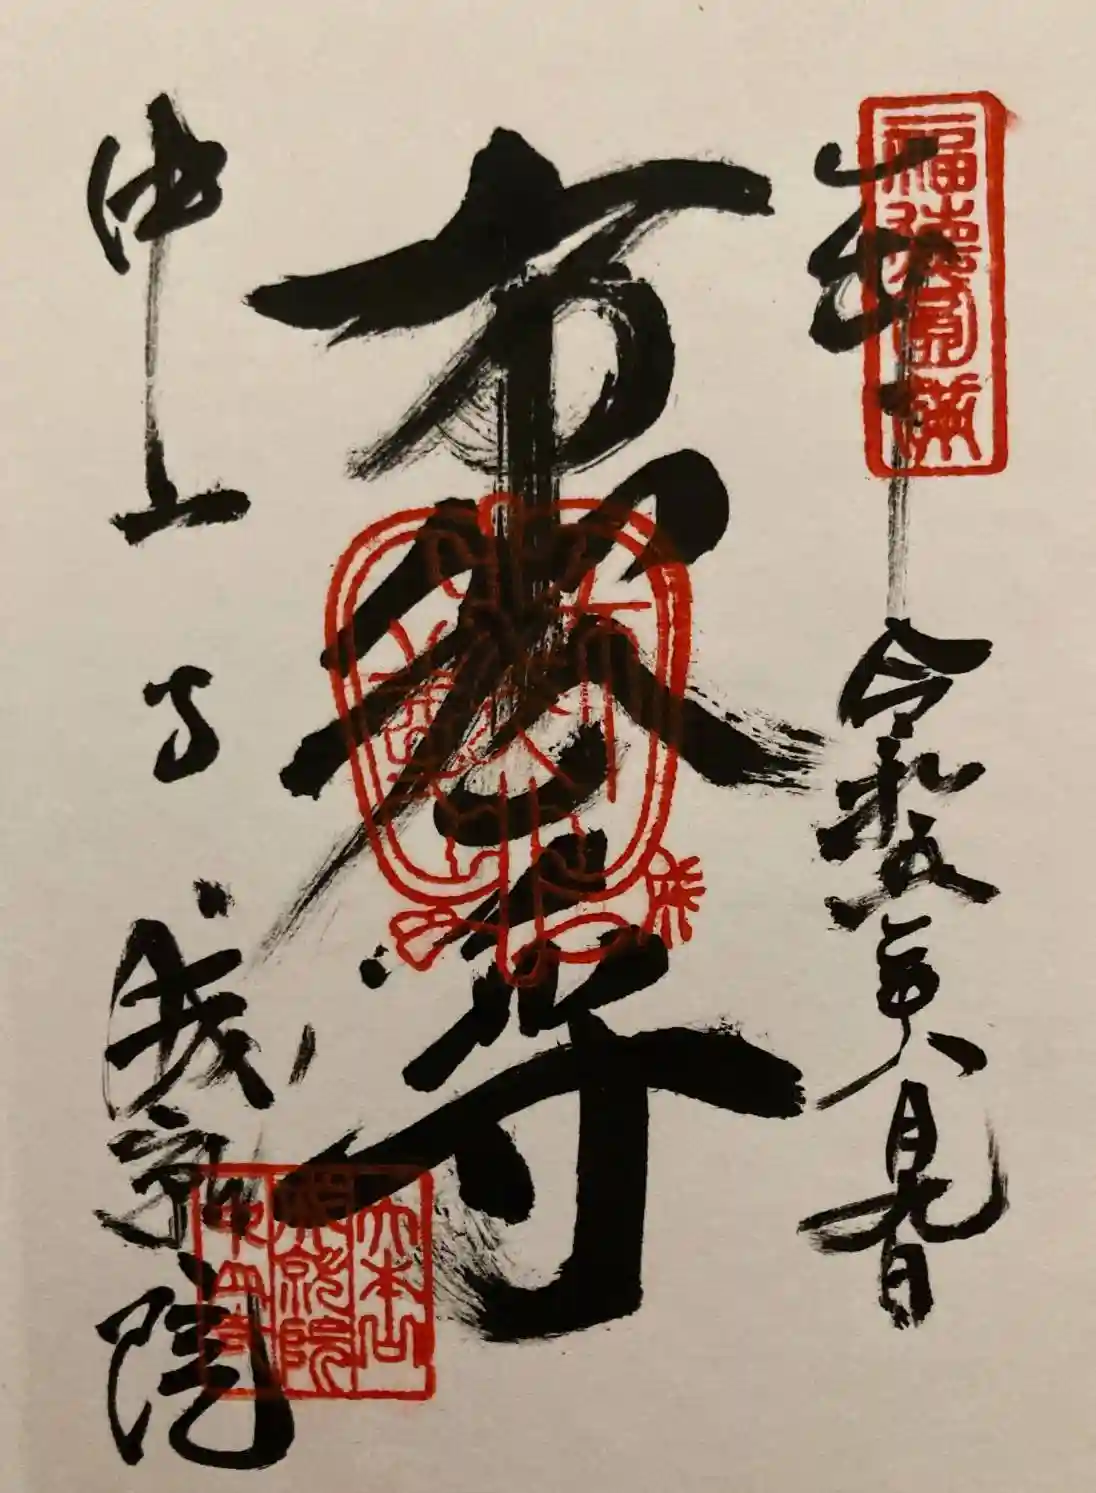 福徳圓満
奉拝 令和五年八月九日
布袋尊
中山寺 成就院
大本山
成就院
中山寺